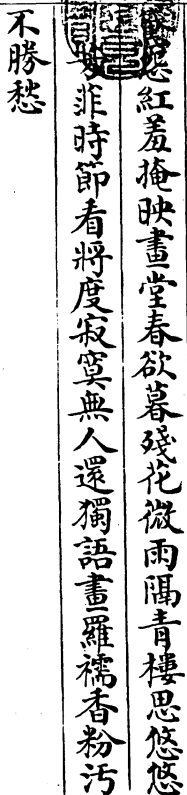 怨紅羞掩映畫堂春欲暮殘花微雨隔青樓思悠悠
菲時節看將度寂寞無人還獨語畫羅襦香粉汚
不勝愁